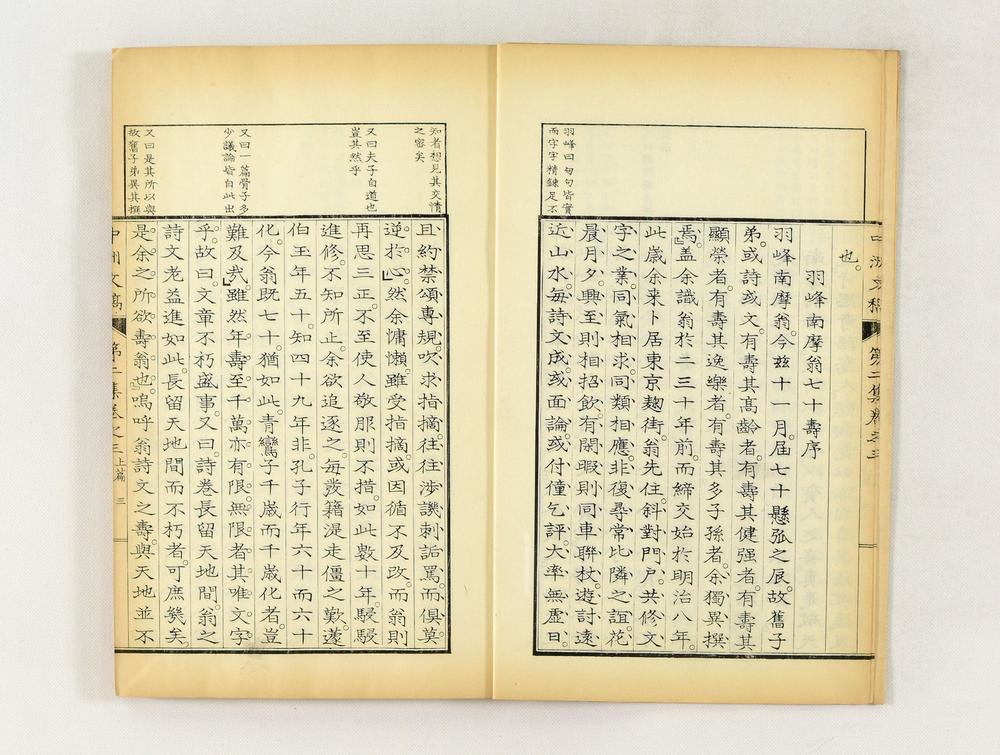 中洲文稿
第二集卷之三
也。
羽峰南摩翁七十壽序
羽峰南摩翁。今玆十一月。屆七十懸弧之辰。故舊子
弟。或詩或文。有壽其高齡者。有壽其健强者。有壽其
顯榮者。有壽其逸樂者。有壽其多子孫者。余獨異撰
焉。蓋余識翁於二三十年前。而締交始於明治八年。
此歲余來卜居東京麴街。翁先住斜對門戶。共修文
字之業。同氣相求。同類相應。非復尋常比隣之誼。花
晨月夕。興至則相招飲。有閑暇則同車聯杖。遊討遠
近山水。每詩文成。或面論。或付僮乞評。大率無虛日。
羽峰曰句句皆實
而字字精鍊足不
知者想見其交情
之密矣
又曰夫子自道也
豈其然乎
又曰一篇骨子多
少議論皆自此出
又曰是其所以與
故舊子弟異其撰
且約禁頌專規。吹求指摘。往往涉譏刺詬罵。而俱莫
逆於心。」然余慵懶。雖受指摘。或因循不及改。而翁則
再思三正。不至使人敬服則不措。如此數十年。駸駸
進修。不知所止。余欲追逐之。每發籍湜走僵之歎。蘧
伯玉年五十。知四十九年非。孔子行年六十而六十
化。今翁既七十。猶如此。青鸞子千歲而千歲化者。豈
難及哉。」雖然年壽至千萬。亦有限。無限者。其唯文字
乎。故曰。文章不朽盛事。又曰。詩卷長留天地間。翁之
詩文老益進如此。長留天地間而不朽者。可庶幾矣。
是余之所欲壽翁也。」嗚呼翁詩文之壽。與天地並不
中洲文稿
第二集卷之三
上篇
三